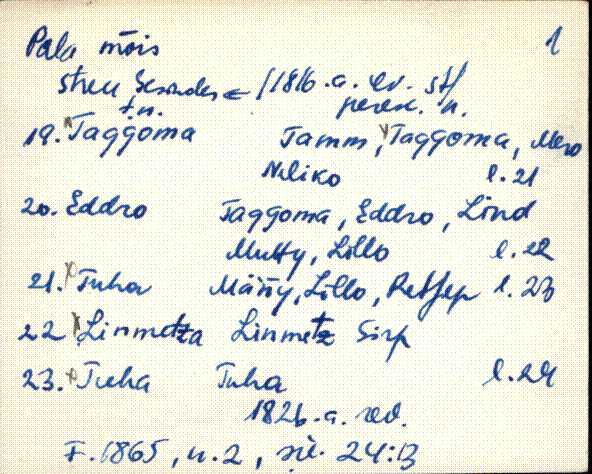 Pala mõis 1
streu Gesindes ← / 1816. a. rev. st/
t. n. peren. n.
19. Taggoma Tamm, Taggoma, Mero
Neliko l. 21
20. Eddro Taggoma, Eddro, Lind
Mutty, Lillo l. 22
21. Tuha Männy, Lillo, l. 23
22 Linmetza Linmetz Sirp
23. Tuha Tuha l. 24
1826. a. rev.
F. 1865, n. 2, sü. 24:13